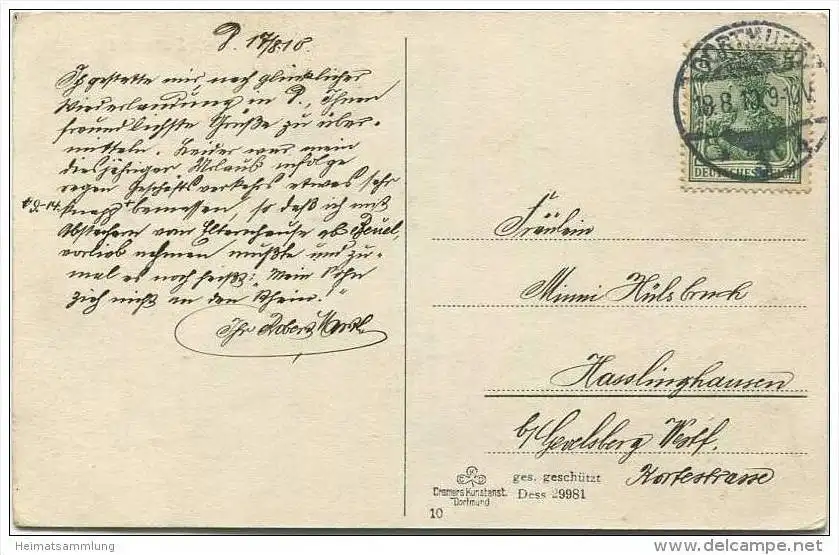 D. 17/8.10.
Ich gestatte mir, nach glücklicher
Wiederlandung in D., Ihnen
freundlichste Grüße zu über-
mitteln. Leider war mein
diesjähriger Urlaub infolge
regen Geschäftsverkehrs etwas sehr
* 9.-14. knapp * bemessen, so daß ich mit
Abstechern vom Elternhause ab Beuel,
vorlieb nehmen mußte und zu-
mal es noch heißt: "Mein Sohn
zieh nicht an den Rhein!"
Ihr Robert
DORTMUND
18.8.10 9-10V.
DEUTSCHES REICH
Fräulein
Minni Hülsbruch
Hasslinghausen
b/Gevelsberg Westf.
Kortestrasse
Cramers Kunstanst.
Dortmund
ges. geschützt
Dess 29981
10
Heimatsammlung
www.delcampe.net